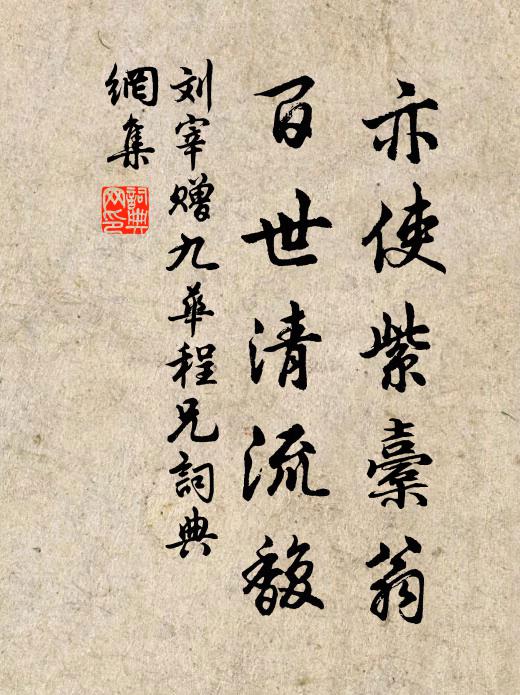 亦使紫橐翁
百世清流馥
刘宰赠九华程兄詞典
網集
詞典
网印